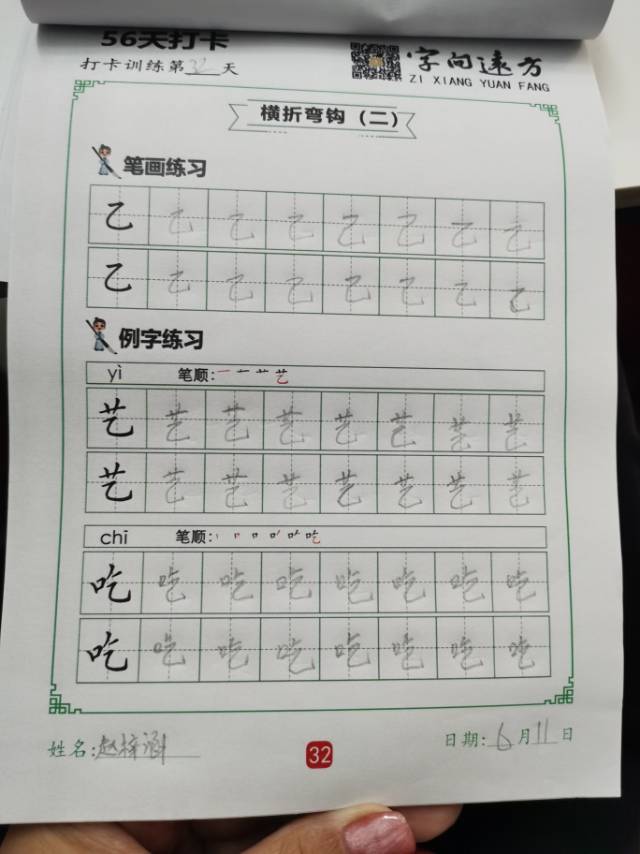 56天打卡
打卡训练第32天
字向远方
ZI XIANG YUAN FANG
横折弯钩（二）
笔画练习
乙 乙 乙 乙 乙 乙 乙 乙
乙 乙 乙 乙 乙 乙 乙 乙
例字练习
yì 笔顺：一 艹 艺
艺 艺 艺 艺 艺 艺 艺 艺
艺 艺 艺 艺 艺 艺 艺 艺
chī 笔顺： 吃
吃 吃 吃 吃 吃 吃 吃 吃
吃 吃 吃 吃 吃 吃 吃 吃
姓名：赵梓涵
32
日期：6月11日